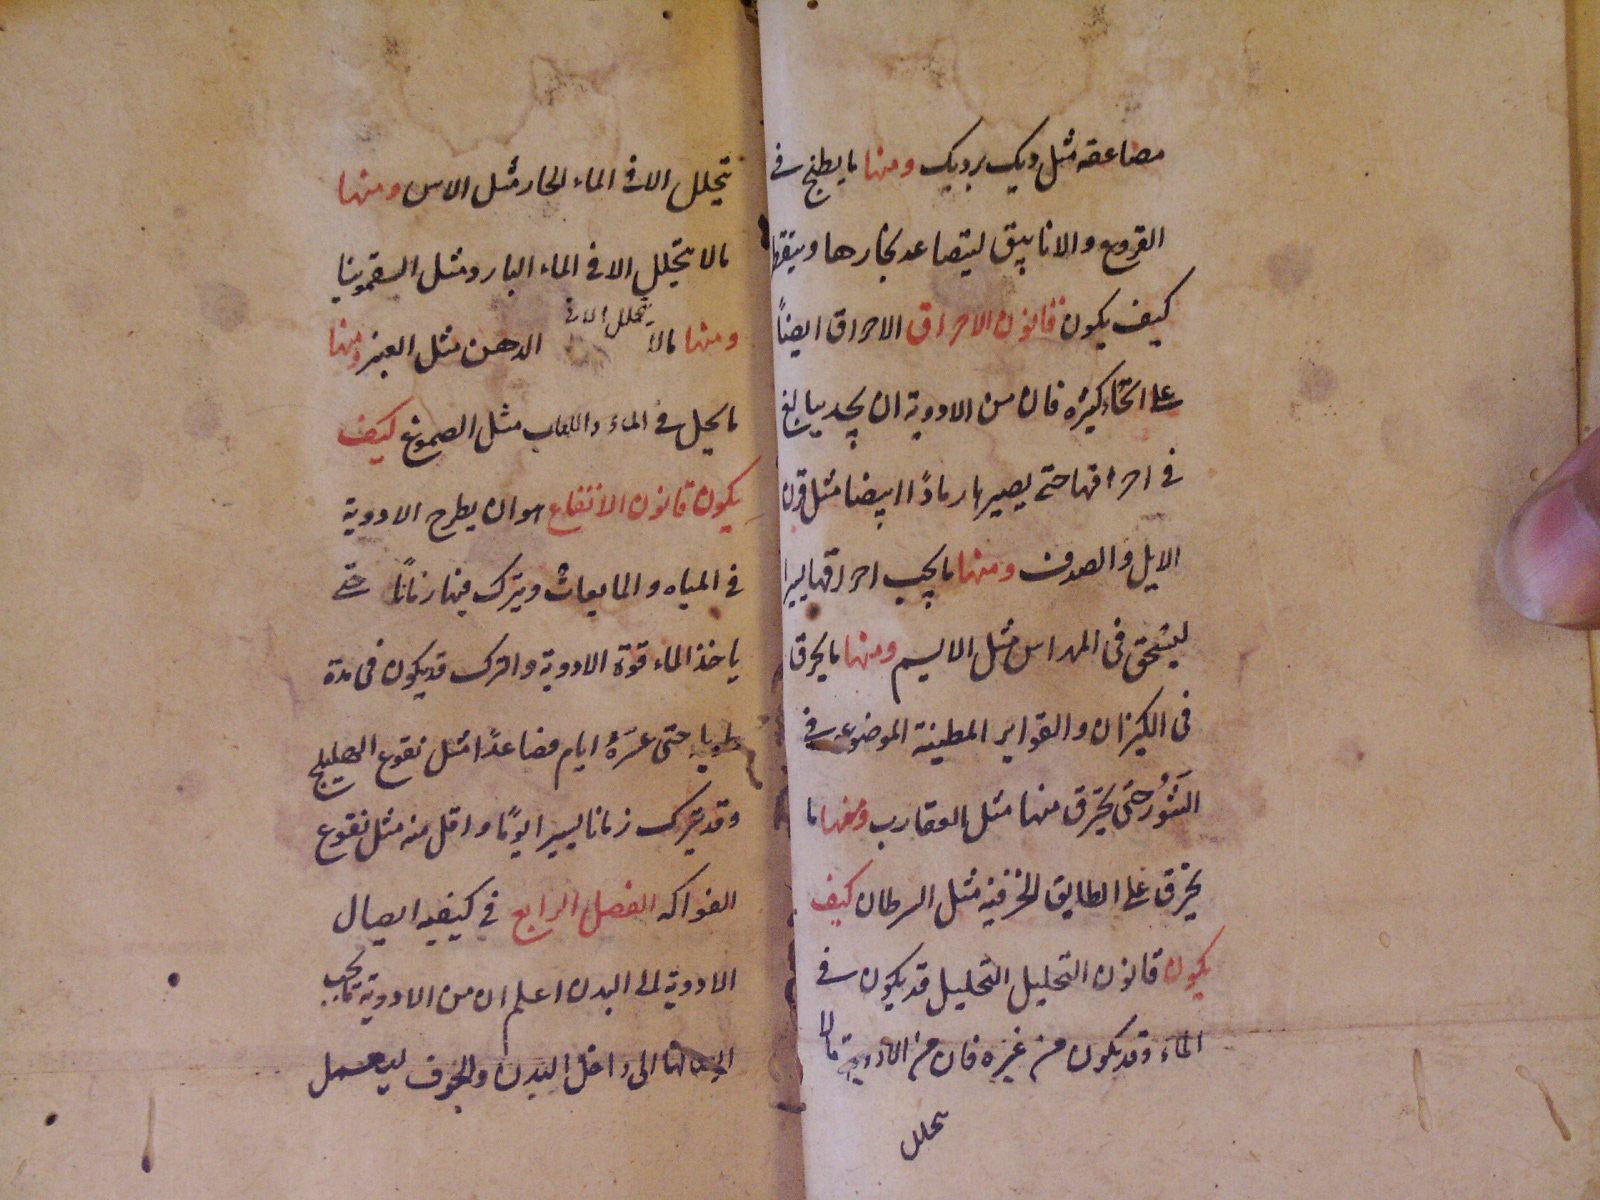 مضاعفه مثل ديك برديك ومنها ما يطبخ في
القروع والانابيق ليتصاعد بخارها ويتقطر
كيف يكون قانون الاحراق الاحراق ايضاً
على انحاء كثيره فان من الادوية ان يجد يبالغ
في احراقها حتى يصير بها رماداً ابيضا مثل قرن
الايل والصدف ومنها ما يجب احراقها يسيرا
ليسحق في المهراس مثل الابريسم ومنها ما يحرق
في الكيزان والقوارير المطينة الموضوعه في
التنور حتى يحترق منها مثل العقارب ومنها ما
يحرق على الطابق الخزفيه مثل السرطان كيف
يكون قانون التحليل التحليل قد يكون في
الماء وقد يكون من غيره فان من الادوية ما لا
تحلل
يتحلل الا في الماء الحار مثل الاس ومنها
ما لا يتحلل الا في الماء البارد مثل السقمونيا
ومنها ما لا يتحلل الا في الدهن مثل العنبر ومنها
ما يحل في الماء واللعاب مثل الصموغ كيف
يكون قانون الانتقاع هو ان يطرح الادوية
في المياه والمايعات ويترك فيها زماناً حتى
ياخذ الماء قوة الادوية والترك قد يكون في مدة
طويلة حتى عشرة ايام فصاعدا مثل نقوع الهليلج
وقد يترك زمانا يسيرا يوما واقل منه مثل نقوع
الفواكه الفصل الرابع في كيفيه ايصال
الادوية الى البدن اعلم ان من الادوية ما يجب
ايصالها الى داخل البدن والجوف ليعمل